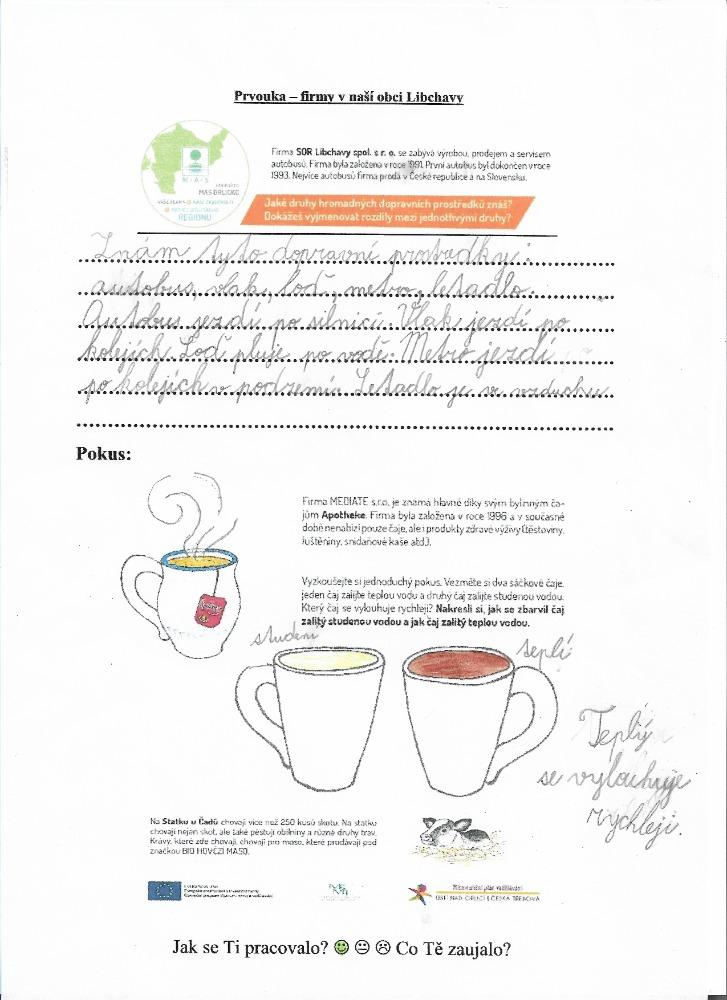 Prvouka – firmy v naší obci Libchavy
M · A · S
MAS ORLICKO
REGIONU
Firma SOR Libchavy spol. s r. o. se zabývá výrobou, prodejem a servisem
autobusů. Firma byla založena v roce 1991. První autobus byl dokončen v roce
1993. Nejvíce autobusů firma prodá v České republice a na Slovensku.
Jaké druhy hromadných dopravních prostředků znáš?
Dokážeš vyjmenovat rozdíly mezi jednotlivými druhy?
Znám tyto dopravní prostředky:
autobus, vlak, loď, metro, letadlo.
Autobus jezdí po silnici. Vlak jezdí po
kolejích. Loď pluje po vodě. Metro jezdí
po kolejích v podzemí. Letadlo je ve vzduchu
Pokus:
Firma MEDIATE s.r.o. je známá hlavně díky svým bylinným ča-
jům Apotheke. Firma byla založena v roce 1996 a v současné
době nenabízí pouze čaje, ale i produkty zdravé výživy (těstoviny,
luštěniny, snídaňové kaše atd.).
Vyzkoušejte si jednoduchý pokus. Vezměte si dva sáčkové čaje,
jeden čaj zalijte teplou vodu a druhý čaj zalijte studenou vodou.
Který čaj se vylouhuje rychleji? Nakresli si, jak se zbarvil čaj
zalitý studenou vodou a jak čaj zalitý teplou vodou.
studení
teplí
Teplý
se vylouhuje
rychleji.
Na Statku u Čadů chovají více než 250 kusů skotu. Na statku
chovají nejen skot, ale také pěstují obilniny a různé druhy trav.
Krávy, které zde chovají, chovají pro maso, které prodávají pod
značkou BIO HOVĚZÍ MASO.
Místní akční plán vzdělávání
ÚSTÍ NAD ORLICÍ | ČESKÁ TŘEBOVÁ
Jak se Ti pracovalo? Co Tě zaujalo?